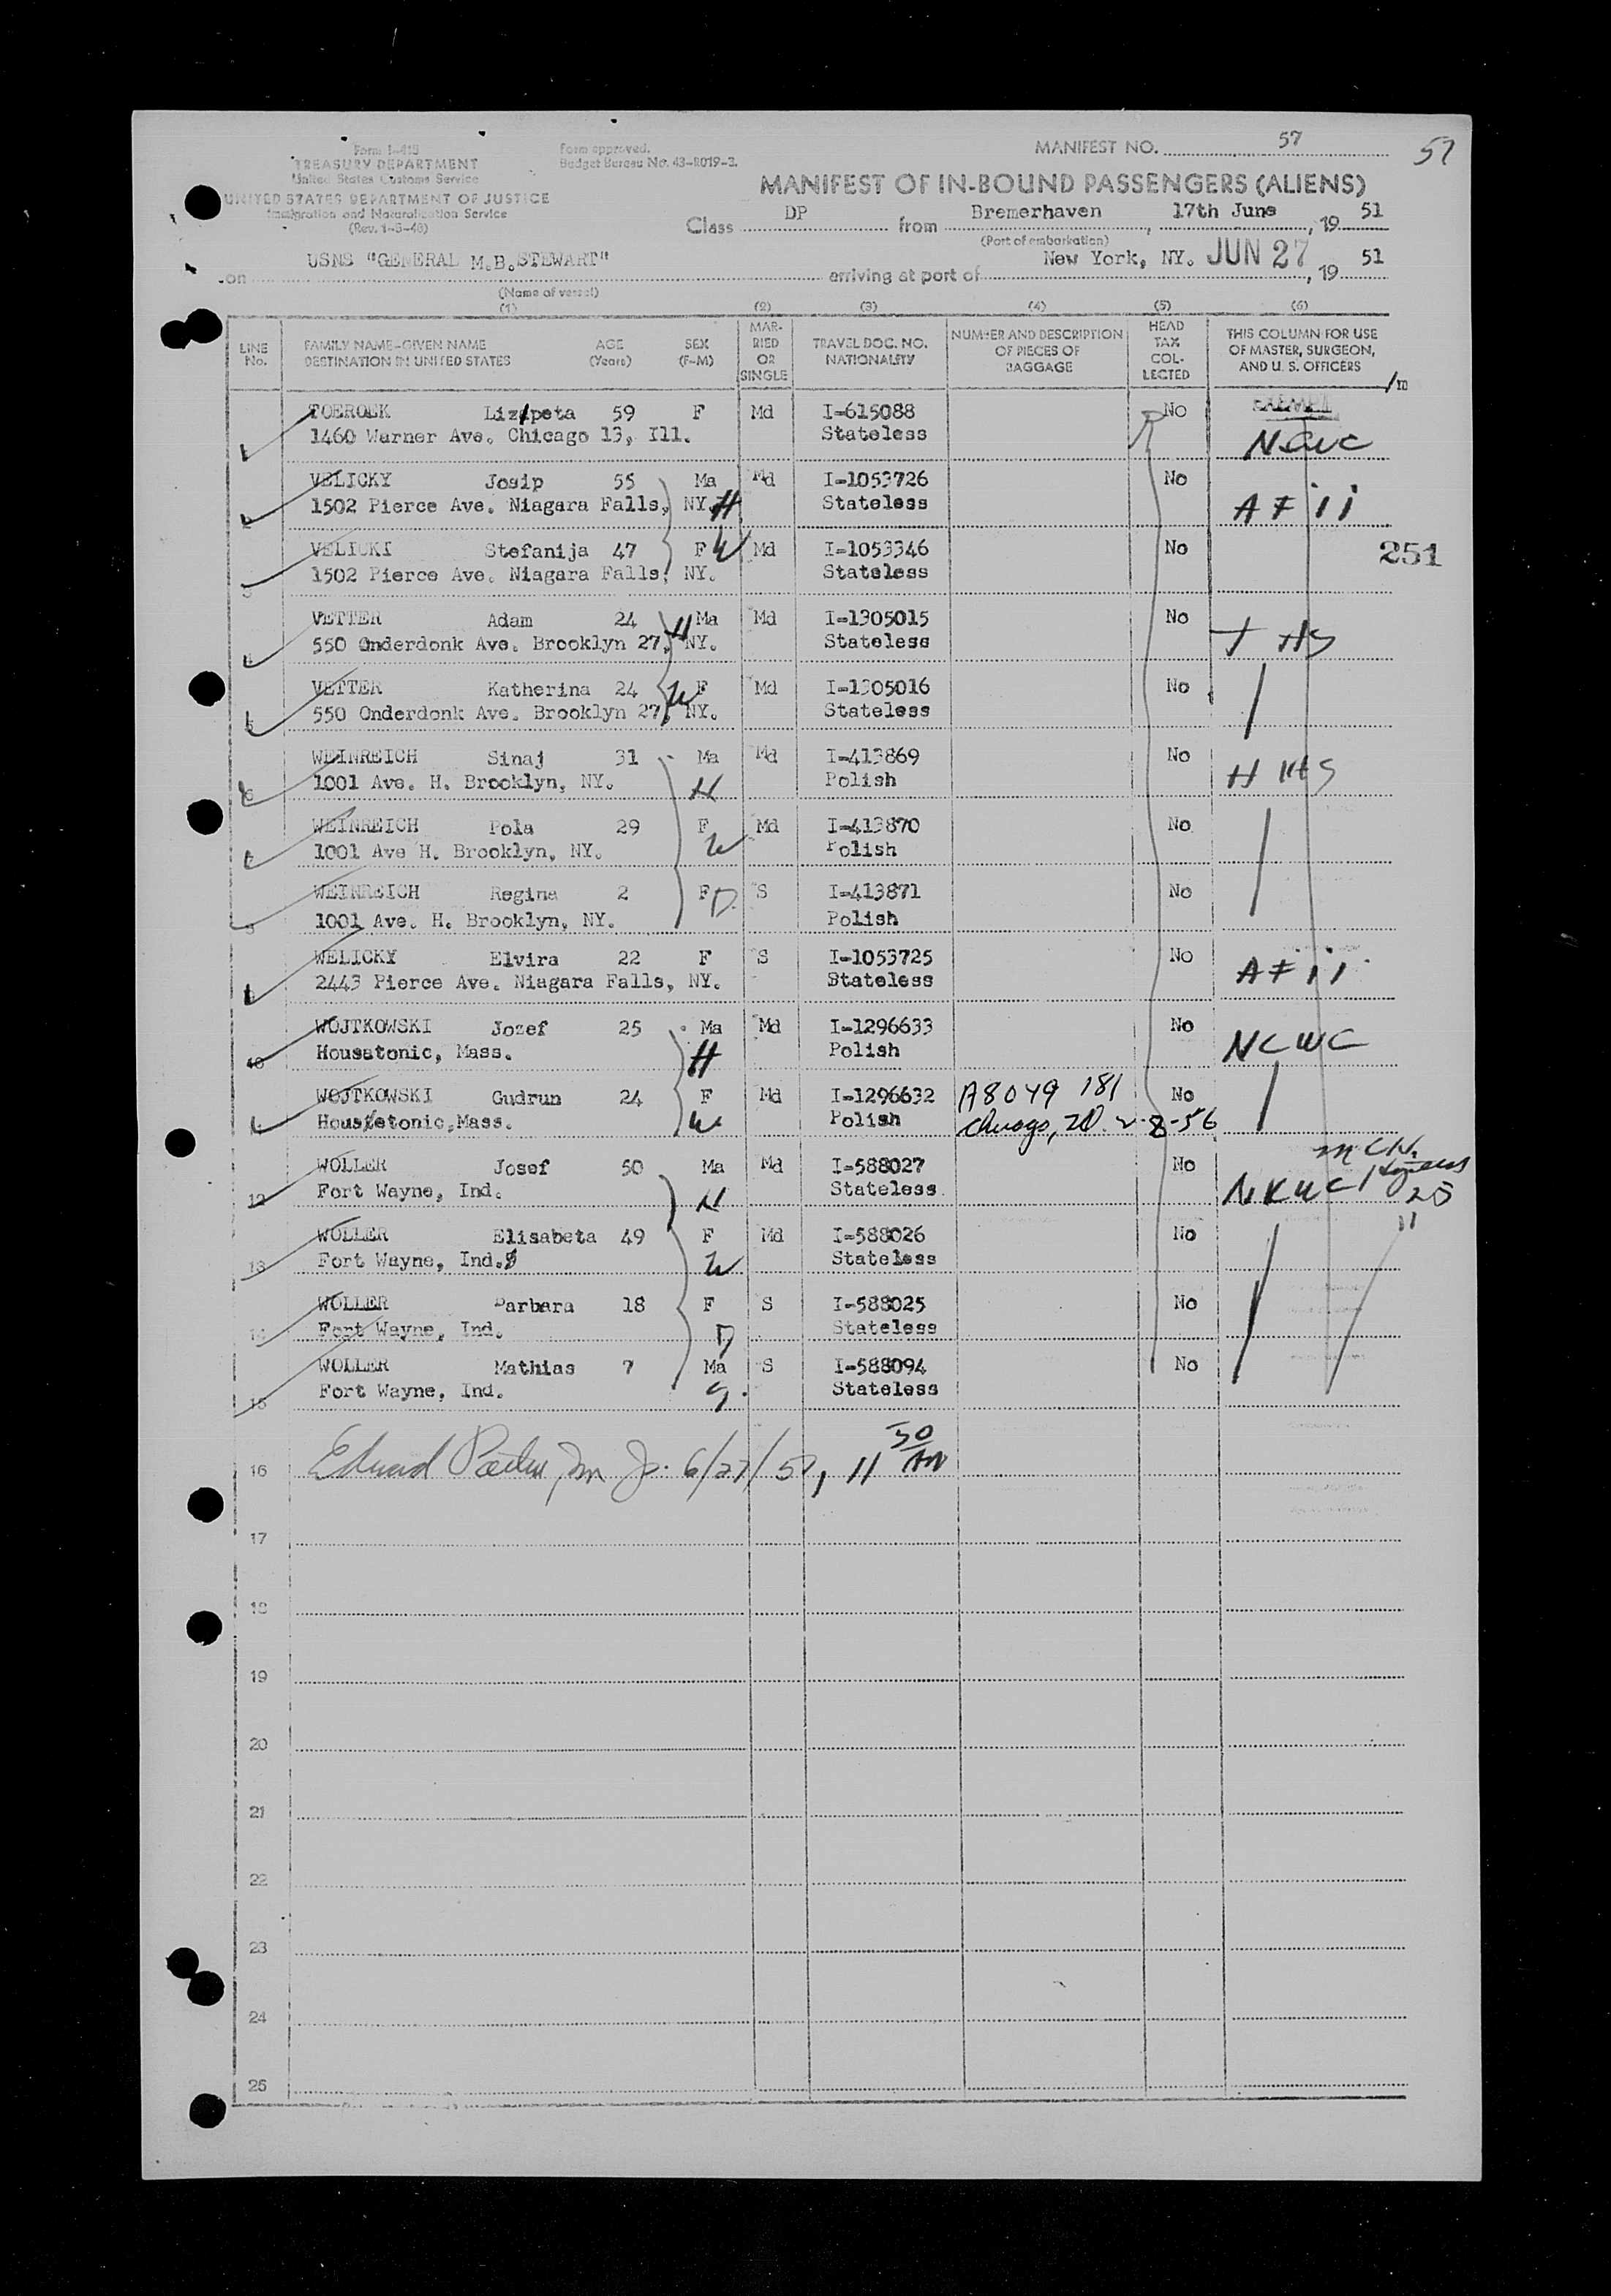 Form I-418
TREASURY DEPARTMENT
United States Customs Service
UNITED STATES DEPARTMENT OF JUSTICE
Immigration and Naturalization Service
(Rev. 1-3-48)
Form approved.
Budget Bureau No. 43-R019-3.
MANIFEST NO. 57
57
MANIFEST OF IN-BOUND PASSENGERS (ALIENS)
Class DP from Bremerhaven, 17th June, 19 51
(Port of embarkation)
on USNS "GENERAL M.B.STEWART" arriving at port of New York, NY. JUN 27, 19 51
(Name of vessel)
(1) (2) (3) (4) (5) (6)
LINE No. FAMILY NAME-GIVEN NAME DESTINATION IN UNITED STATES AGE (Years) SEX (F-M) MARRIED OR SINGLE TRAVEL DOC. NO. NATIONALITY NUMBER AND DESCRIPTION OF PIECES OF BAGGAGE HEAD TAX COLLECTED THIS COLUMN FOR USE OF MASTER, SURGEON, AND U. S. OFFICERS
TOEROEK Lizapeta 59 F Md I-615088 No
1460 Warner Ave. Chicago 13, Ill. Stateless NCWC
VELICKY Josip 55 Ma Md I-1053726 No
1502 Pierce Ave. Niagara Falls, NY. H Stateless AFii
VELICKI Stefanija 47 F W Md I-1053346 No 251
1502 Pierce Ave. Niagara Falls, NY. Stateless
VETTER Adam 24 H Ma Md I-1305015 No
550 Onderdonk Ave. Brooklyn 27, NY. Stateless
VETTER Katherina 24 W F Md I-1305016 No
550 Onderdonk Ave. Brooklyn 27, NY. Stateless
6 WEINREICH Sinaj 31 Ma Md I-413869 No
1001 Ave. H. Brooklyn, NY. H Polish
WEINREICH Pola 29 F Md I-413870 No
1001 Ave H. Brooklyn, NY. W Polish
WEINREICH Regina 2 F D. S I-413871 No
1001 Ave. H. Brooklyn, NY. Polish
WELICKY Elvira 22 F S I-1053725 No
2443 Pierce Ave. Niagara Falls, NY. Stateless AFii
10 WOJTKOWSKI Jozef 25 Ma Md I-1296633 No
Housatonic, Mass. H Polish NCWC
WOJTKOWSKI Gudrun 24 F Md I-1296632 A8049 181 No
Housetonic, Mass. W Polish Chicago, Ill. 2-8-56
12 WOLLER Josef 50 Ma Md I-588027 No
Fort Wayne, Ind. H Stateless
13 WOLLER Elisabeta 49 F Md I-588026 No
Fort Wayne, Ind. W Stateless
14 WOLLER Barbara 18 F S I-588025 No
Fort Wayne, Ind. D Stateless
15 WOLLER Mathias 7 Ma S I-588094 No
Fort Wayne, Ind. Stateless
16 6/27/51, 11 30 AM
17
18
19
20
21
22
23
24
25